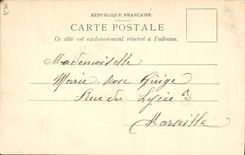 RÉPUBLIQUE FRANÇAISE
CARTE POSTALE
Ce côté est exclusivement réservé à l'adresse.
Mademoiselle
Marie Rose
Rue du Lycée 3
Marseille